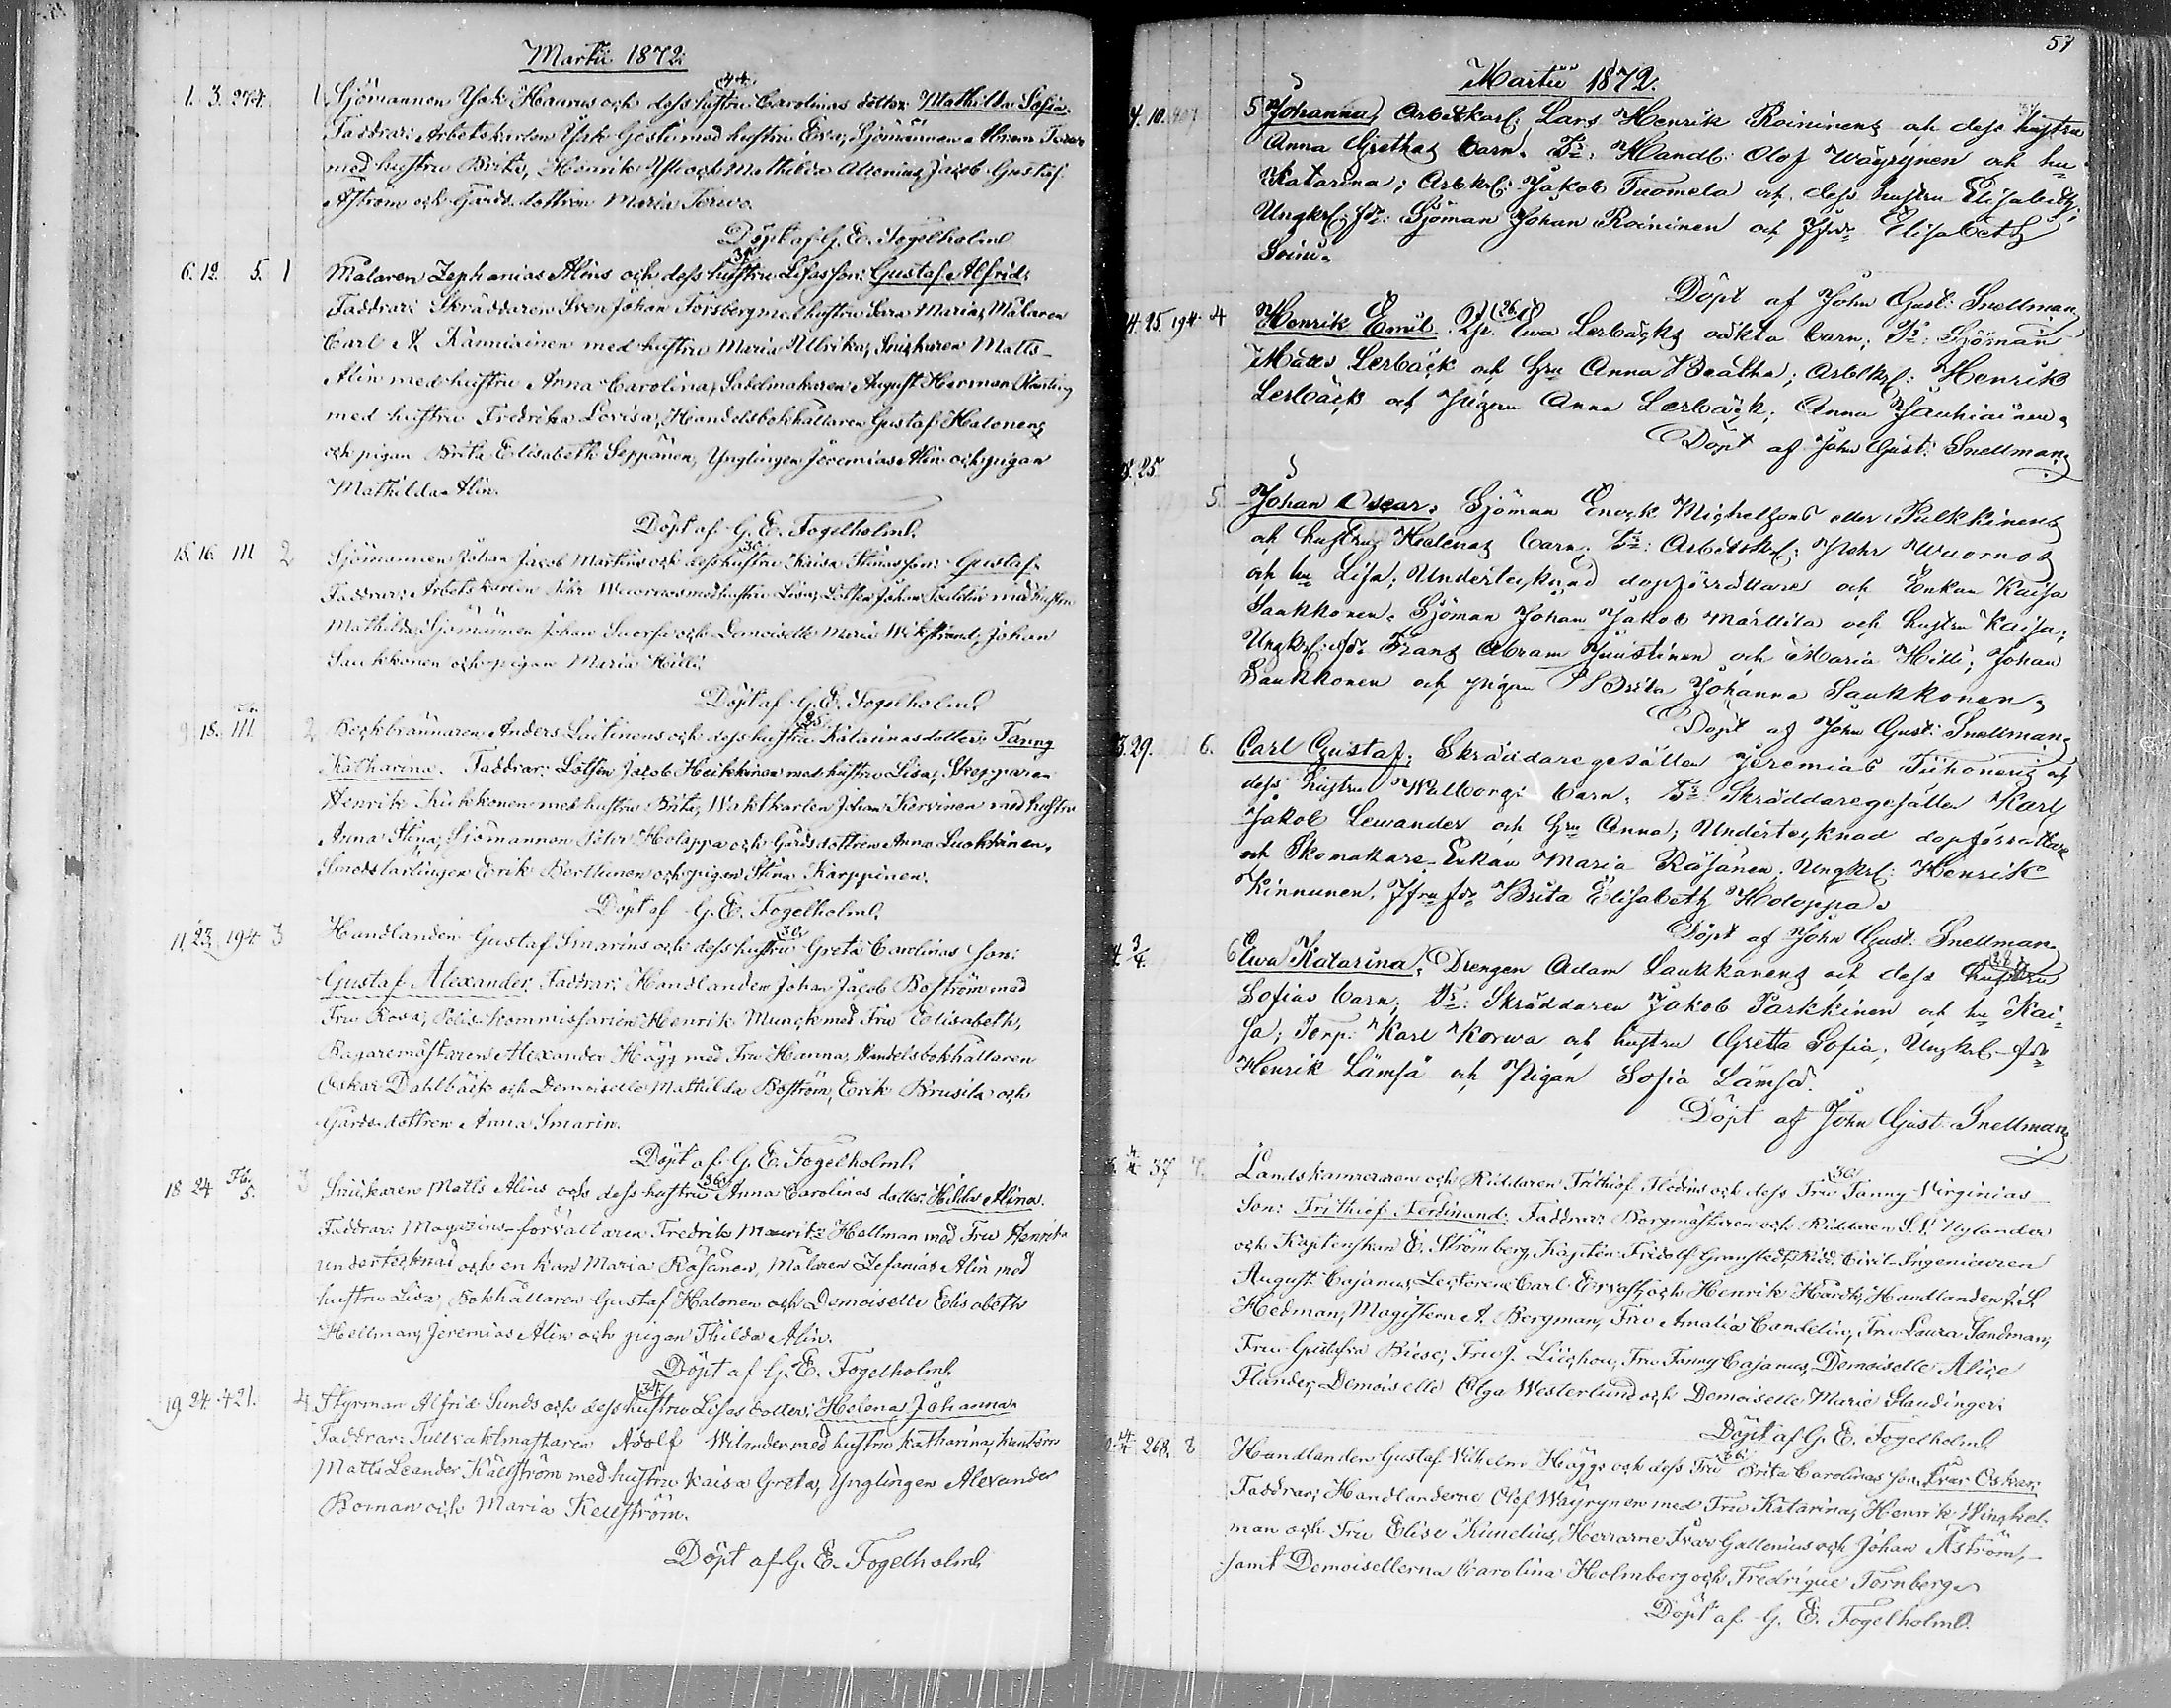 Martii 1872.
1. 3. 274. 1 Sjömannen Isak Haarus och dess hustru (44) Carolinas dotter: Mathilda Sofia.
Faddrar: Arbetskarlen Isak Gesti med hustru Eva, Sjömannen Abram
med hustru Brita, Henrik och Mathilda Jacob Gustaf
Åström och Gårds dottren Maria Terwo.
Döpt af G. E. Fogelholm.
6. 12. 5. 1 Målaren Zephanias Alins och dess hustru Lisas son: Gustaf Alfrid.
Faddrar: Skräddaren Sven Johan Forsberg med hustru Sara Maria, Målaren
Carl A. Kanniainen med hustru Maria Ulrika, Snickaren Matts
Alin med hustru Anna Carolina, Sadelmakaren August Herman
med hustru Fredrika Lovisa, Handelsbokhållaren Gustaf Halonen
och pigan Brita Elisabeth Seppänen, Ynglingen Jeremias Alin och pigan
Mathilda Alin.
Döpt af G. E. Fogelholm.
15. 16. 111 2 Sjömannen Johan Jacob Martins och dess hustru (30) Kaisa Stinas son: Gustaf.
Faddrar: Arbetskarlen Pehr Wuornos med hustru Lisa, Lotsen Johan med hustru
Mathilda, Sjömannen Johan och Demoiselle Maria Wikstrand, Johan
Saukkonen och pigan Maria Hilli.
Döpt af G. E. Fogelholm.
9. 18. 111 2 Beckbrännaren Anders Luttinens och dess hustru (25) Katarinas dotter: Fanny
Katharina. Faddrar: Lotsen Jacob Heikkinen med hustru Lisa, Skepparen
Henrik Kukkonen med hustru Brita, Waktkarlen Johan Karvinen med hustru
Anna Stina, Sjömannen Peter Holappa och Gårdsdottren Anna Luoktinen,
Smedslärlingen Erik Berttunen och pigan Stina Karppinen.
Döpt af G. E. Fogelholm.
11. 23. 194 3 Handlanden Gustaf Smarins och dess hustru (30) Greta Carolinas son:
Gustaf Alexander. Faddrar: Handlanden Johan Jacob Boström med
Fru Rosa, Polis-kommissarien Henrik Munck med Fru Elisabeth,
Bagaremästaren Alexander Hägg med Fru Hanna, Handelsbokhållaren
Oskar Dahlbäck och Demoiselle Mathilda Boström, Erik Krusila och
Gårds-dottren Anna Smarin.
Döpt af G. E. Fogelholm.
18 24 5. 3 Snickaren Matts Alins och dess hustru (36) Anna Carolinas dotter: Hilda Alina.
Faddrar: Magasins-förvaltaren Fredrik Mauritz Hellman med Fru Henrika
undertecknad och enkan Maria Räsänen, Målaren Zefanias Alin med
hustru Lisa, Bokhållaren Gustaf Halonen och Demoiselle Elisabeth
Hellman, Jeremias Alin och pigan Thilda Alin.
Döpt af G. E. Fogelholm.
19. 24. 421. 4 Styrman Alfrid Sunds och dess hustru (34) Lisas dotter: Helena Johanna.
Faddrar: Tullvaktmästaren Adolf Wilander med hustru Katharina,
Matts Leander Källström med hustru Kaisa Greta, Ynglingen Alexander
Boman och Maria Kellström.
Döpt af G. E. Fogelholm.
57
Martii 1872.
4. 10. 5 Johanna, Arbetskarl: Lars Henrik Roininens och dess hustru
Anna Grethas barn. Fr: Handl: Olof Wäyrynen och hu
Katarina; Arbkrl: Jakob Tuomela och dess hustru Elisabeth;
Ungkrl: fdr: Sjöman Johan Roininen och Jfru Elisabeth
Soini.
Döpt af John Gust: Snellman
14. 25. 194. 4 Henrik Emil. Pig. (26) Ewa Lerbäcks oäkta barn; Fr: Sjöman
Matts Lerbäck och Hru Anna Beatha; Arbtkrl: Henrik
Lerbäck och Pigan Anna Lerbäck; Anna Jauhiainen.
Döpt af John Gust: Snellman
25.
5. Johan Oscar. Sjöman Enock Michelsons eller Pulkkinens
och hustrus Helenas barn; Fr: Arbetskrl: Pehr Wuornos
och hu Lisa; Undertecknad dopförrättare och Enkan Kaisa
Saukkonen. Sjöman Johan Jakob Marttila och hustru Kaisa;
Ungkrl: fdr: Frans Abram Juustinen och Maria Hilli; Johan
Saukkonen och pigan Brita Johanna Saukkonen,
Döpt af John Gust: Snellman
3. 29. 6. Carl Gustaf: Skräddaregesällen Jeremias Tiihonens och
dess hustru Walborgs barn; Fr: Skräddaregesällen Karl
Jakob Lewander och Hru Anna; Undertecknad dopförrättare
och Skomakare-Enkan Maria Räsänen. Ungkrl: Henrik
Kinnunen, Jfru fdr Brita Elisabeth Holappa.
Döpt af John Gust: Snellman
3/4. 6 Ewa Katarina. Drengen Adam Laukkanens och dess hustru (28)
Sofias barn; Fr: Skräddaren Jakob Parkkinen och hu Kai-
sa; Torp: Karl Korwa och hustru Gretta Sofia; Ungkrl: fdr
Henrik Lämsä och Pigan Sofia Lämsä.
Döpt af John Gust: Snellman
37 7. Landskamreraren och Riddaren Frithiof Flodins och dess Fru (30) Fanny Virginias
Son: Frithiof Ferdinand. Faddrar: Borgmästaren och Riddaren S. V. Nylander
och Kaptenskan E. Strömberg, Kapten Fridolf Granstedt, Ridd. Civil-Ingenieuren
August Cajanus, Lectorerne Carl Ervast och Henrik Hårdh, Handlanden J. S.
Hedman, Magistern A. Bergman, Fru Amalia Candelin, Fru Laura Sandman,
Fru Gustafva Biese, Fru J. Lüchou, Fru Fanny Cajanus, Demoiselle Alice
Flander, Demoiselle Olga Westerlund och Demoiselle Marie Staudinger.
Döpt af G. E. Fogelholm.
268. 8 Handlanden Gustaf Vilhelm Häggs och dess Fru (36) Brita Carolinas son: Ivar Oskar;
Faddrar: Handlanderne Olof Wäyrynen med Fru Katarina, Henrik Winckel-
man och Fru Elise Kunelius, Herrarne Ivar Gallenius och Johan Åström,
samt Demoisellerna Carolina Holmberg och Fredrique Tornberg.
Döpt af G. E. Fogelholm.